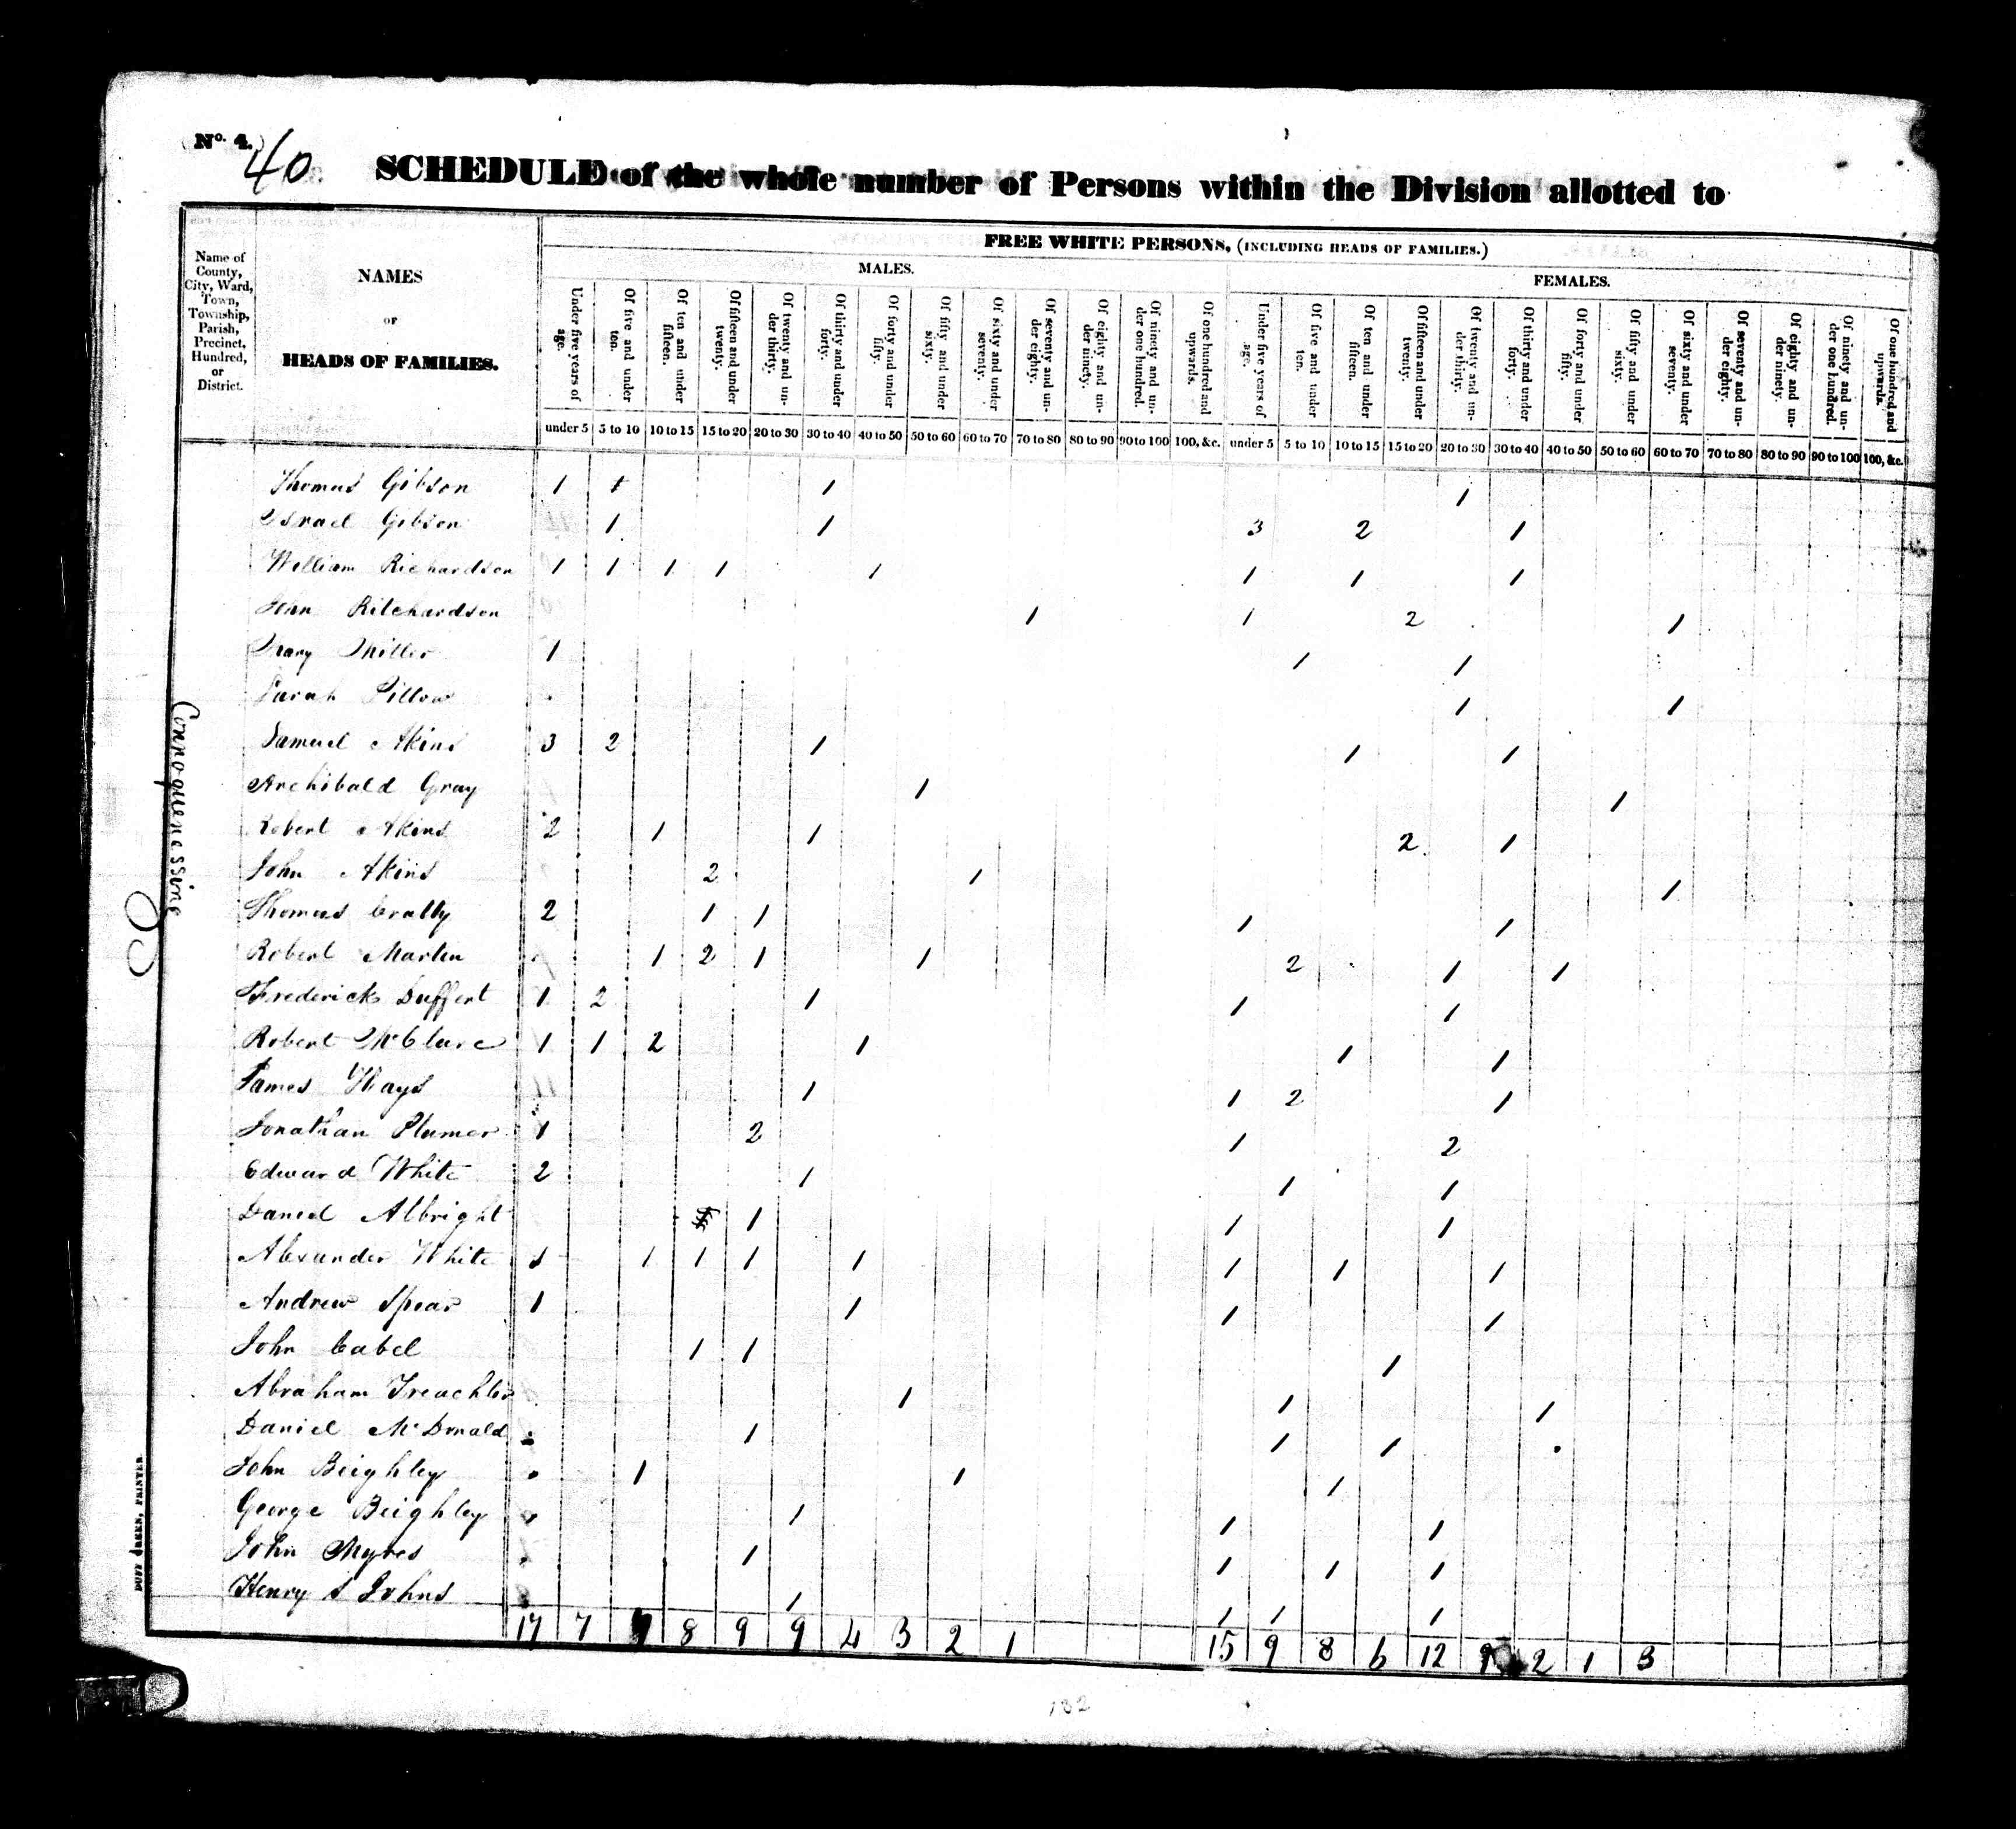 No. 4.
40
SCHEDULE of the whole number of Persons within the Division allotted to
Name of County, City, Ward, Town, Township, Parish, Precinct, Hundred, or District.
NAMES
or
HEADS OF FAMILIES.
FREE WHITE PERSONS, (INCLUDING HEADS OF FAMILIES.)
MALES.
FEMALES.
Under five years of age. Of five and under ten. Of ten and under fifteen. Of fifteen and under twenty. Of twenty and under thirty. Of thirty and under forty. Of forty and under fifty. Of fifty and under sixty. Of sixty and under seventy. Of seventy and under eighty. Of eighty and under ninety. Of ninety and under one hundred. Of one hundred and upwards. Under five years of age. Of five and under ten. Of ten and under fifteen. Of fifteen and under twenty. Of twenty and under thirty. Of thirty and under forty. Of forty and under fifty. Of fifty and under sixty. Of sixty and under seventy. Of seventy and under eighty. Of eighty and under ninety. Of ninety and under one hundred. Of one hundred and upwards.
under 5 5 to 10 10 to 15 15 to 20 20 to 30 30 to 40 40 to 50 50 to 60 60 to 70 70 to 80 80 to 90 90 to 100 100, &c. under 5 5 to 10 10 to 15 15 to 20 20 to 30 30 to 40 40 to 50 50 to 60 60 to 70 70 to 80 80 to 90 90 to 100 100, &c.
Connoquenessing
Thomas Gibson 1 1 1 1
Israel Gibson 1 1 3 2 1
William Richardson 1 1 1 1 1 1 1 1
John Ritchardson 1 1 2 1
Mary Miller 1 1 1
Sarah Pillow 1 1
Samuel Akins 3 2 1 1 1
Archibald Gray 1 1
Robert Akins 2 1 1 2 1
John Akins 2 1 1
Thomas Cratty 2 1 1 1 1
Robert Martin 1 2 1 1 2 1 1
Frederick Duffert 1 2 1 1 1
Robert McClure 1 1 2 1 1 1
James Hays 1 1 2 1
Jonathan Plumer 1 2 1 2
Edward White 2 1 1 1
Daniel Albright 1 1 1
Alexander White 1 1 1 1 1 1 1 1
Andrew Spear 1 1 1 1
John Cabel 1 1 1
Abraham 1 1 1
Daniel McDonald 1 1 1
John Beighley 1 1 1
George Beighley 1 1 1
John Myres 1 1 1 1
Henry S Johns 1 1 1 1
17 7 8 9 9 4 3 2 1 15 9 8 6 12 2 1 3
132